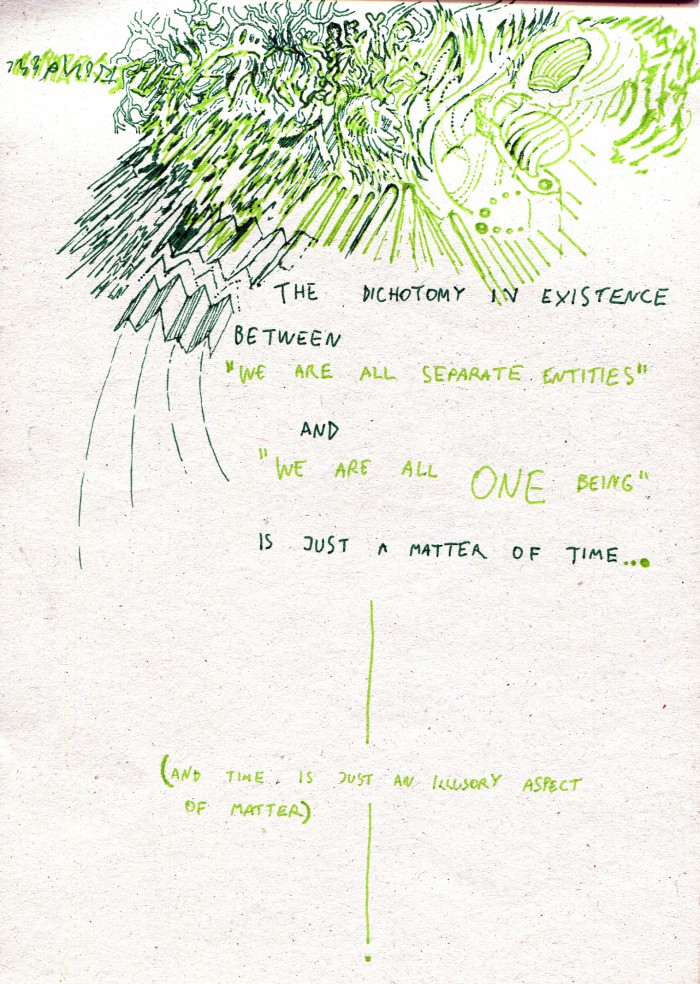 THE DICHOTOMY IN EXISTENCE
BETWEEN
"WE ARE ALL SEPARATE ENTITIES"
AND
"WE ARE ALL ONE BEING"
IS JUST A MATTER OF TIME...
(AND TIME IS JUST AN ILLUSORY ASPECT
OF MATTER)